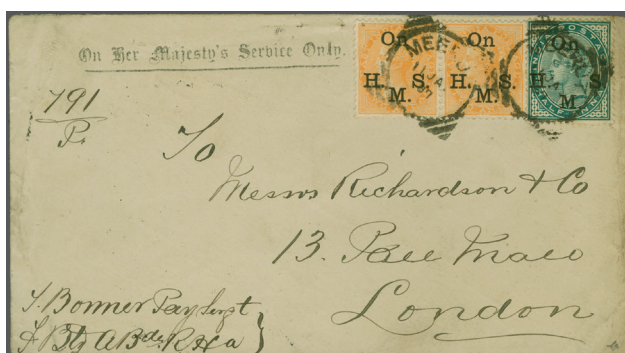 On Her Majesty's Service Only.
On H. S. M.
On H. S. M.
On H. S. M.
MEERUT
791
P.
To
Messrs Richardson & Co
13. Pall Mall
London
J. Bonner Pay Sergt
Bty A Bde R H A